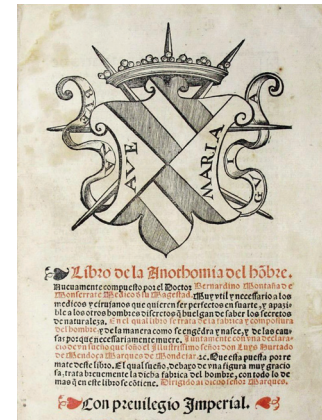 AVE
MARIA
Libro de la Anothomia del hõbre.
Nuevamente compuesto por el Doctor Bernardino Montaña de
Monserrate Medico d su Magestad. Muy util y necessario a los
medicos y cirujanos que quieren ser perfectos en su arte, y apazi-
ble a los otros hombres discretos q huelgan de saber los secretos
de naturaleza. En el qual libro se trata de la fabrica y compostura
del hombre, y de la manera como se engẽdra y nasce, y de las cau-
sas porque necessariamente muere. Juntamente con una declara-
cio de un sueño que soño el Illustrissimo señor don Luys Hurtado
de Mendoça Marques de Mondejar .&c. Que esta puesta por re
mate deste libro. El qual sueño, debaxo de una figura muy gracio
sa, trata brevemente la dicha fabrica del hombre, con todo lo de
mas q en este libro se cõtiene. Dirigido al dicho señor Marques.
Con previlegio Imperial.